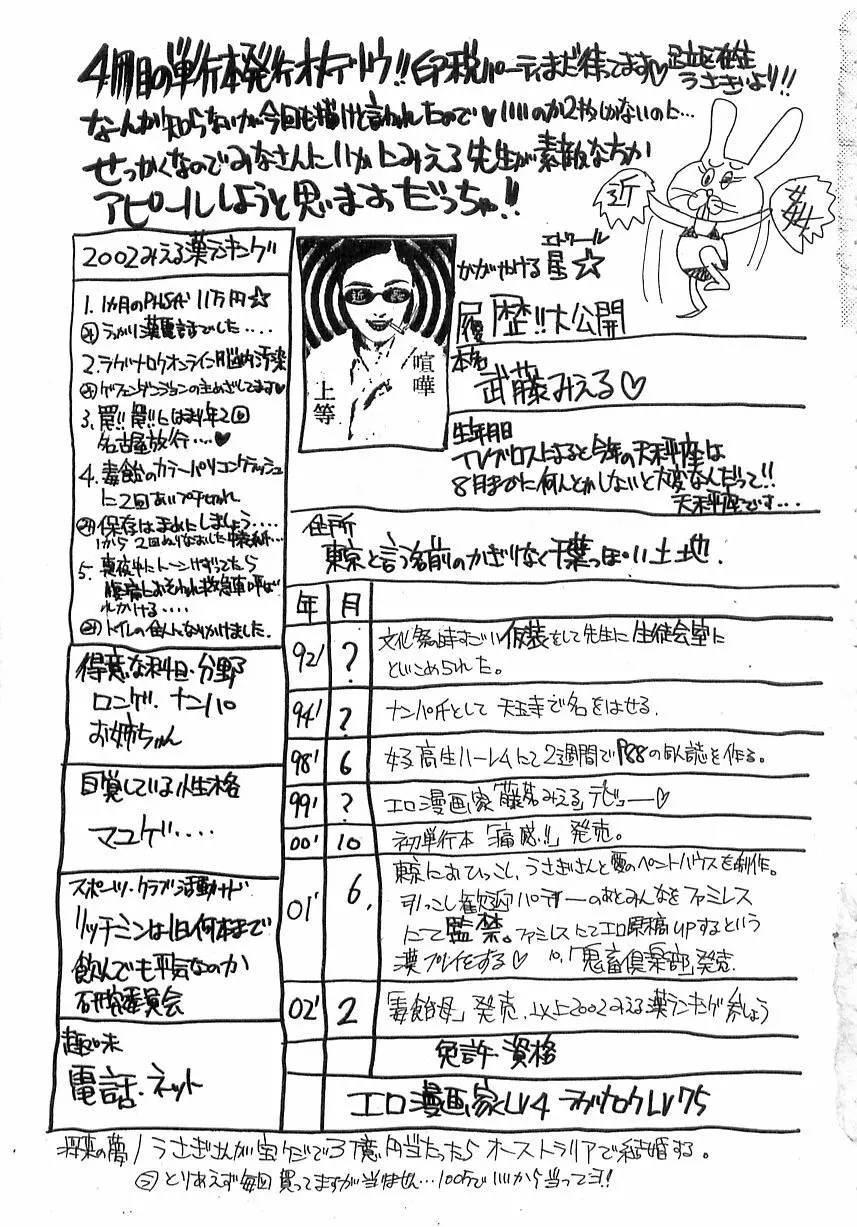 4冊目の単行本発行オメデトウ!!印税パーティまだ待ってます♡足立区在住
うさぎより!!
なーんか知らないけど今回も描けと言われたので♥いいのか2枚しかないのに…
せっかくなのでみなさんにいかにみえる先生が素敵な方か
アピールしようと思いますっだっちゃ!!
近
2002みえる薬ランキング
1. 1カ月のPHS代 11万円☆
2. ラグナロクオンライン脳内汚染
3. 罠!!罠!!にはまり年2回
名古屋旅行…♥
4. 毒飴のカラー
に2回
保存はまめにしましょう….
1から2回ぬりなおした
5. 真夜中にトーンけずってたら
腹痛におそわれ救急車呼ば
れかける….
トイレの住人になりかけました.
得意な科目・分野
ロンゲ. ナンパ
お姉ちゃん
自覚している性格
マユゲ….
スポーツ・クラブ活動など
リッチミンは1日何本まで
飲んでも平気なのか
研究委員会
趣味
電話・ネット
喧嘩
上等
エトワール
かがやける星☆
履歴!!大公開
本名
武藤みえる♡
生年月日
TVブロスによると今年の天秤座は
8月までに何んとかしないと大変なんだって!!
天秤座です…
住所
東京と言う名前のかぎりなく千葉っぽい土地.
年 月
92' ? 文化祭の時すごい仮装をして先生に生徒会室に
といこめられた。
94' ? ナンパ氏として天王寺で名をはせる.
98' 6 女子高生ハーレムにて2週間でP88の同人誌を作る。
99' ? エロ漫画家「藤みえる」デビュー♡
00' 10 初単行本「痛感!!」発売。
01' 6. 東京におひっこし、うさぎさんと愛のペントハウスを制作。
引っこし歓迎パーティーのあとみんなをファミレス
にて監禁。ファミレスにてエロ原稿UPするという
漢プレイをする♡ 10,「鬼畜倶楽部」発売.
02' 2 「毒飴母」発売.以上2002みえる薬ランキング参しょう
免許・資格
エロ漫画家LV4 ラグナロクLV75
将来の夢/うさぎさんが宝クジで3億円当たったらオーストラリアで結婚する。
とりあえず毎回買ってますが当りません…100万でいいから当ってヨ!!